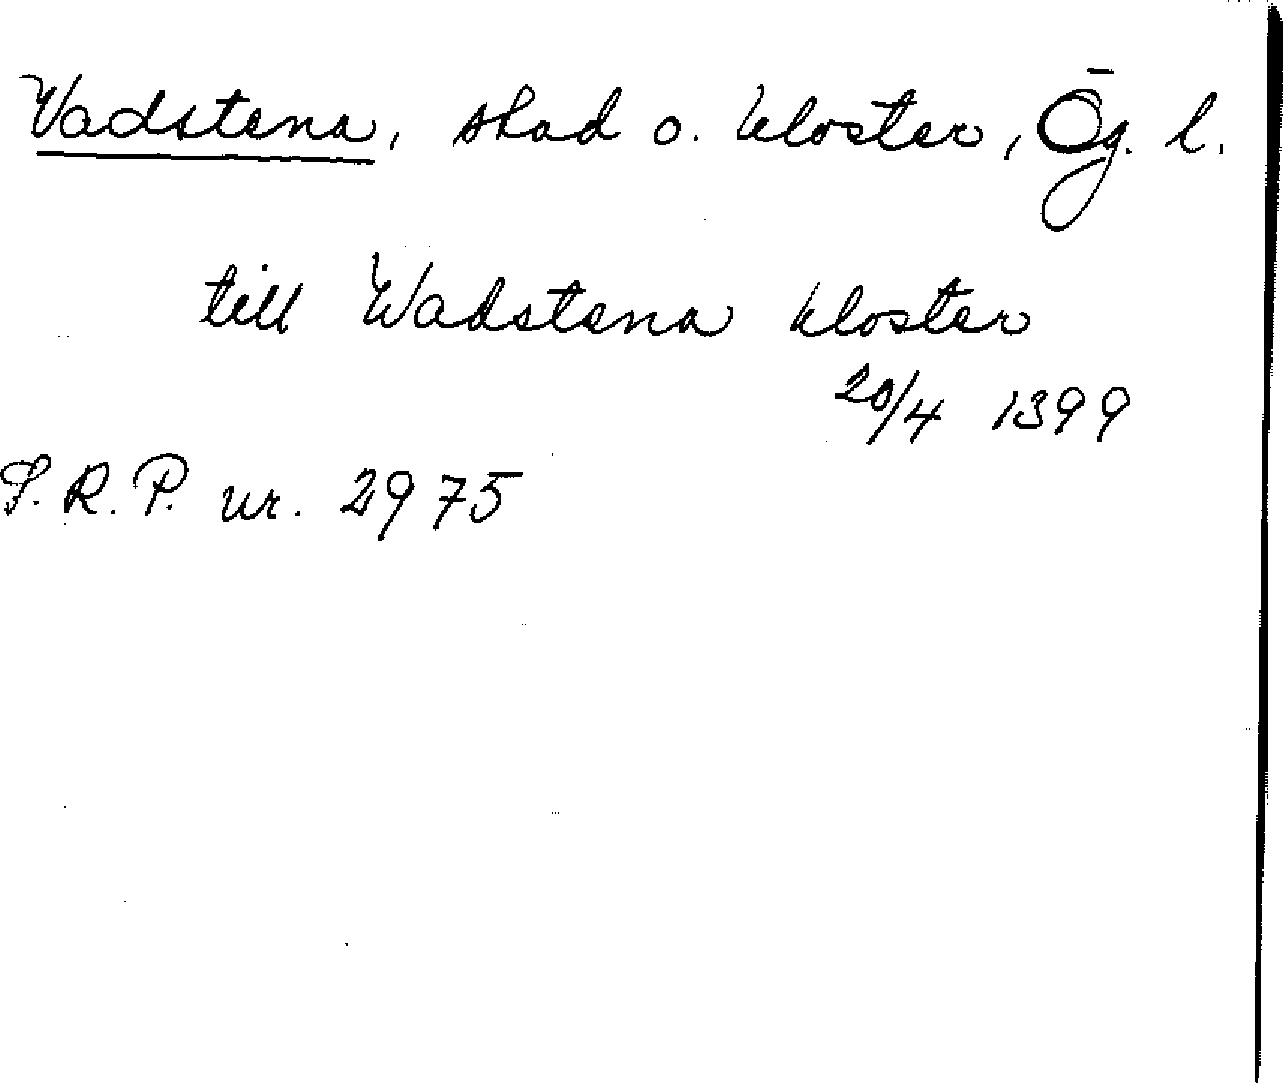 Vadstena, stad o. kloster, Ög. l.
till Wadstena kloster
20/4 1399
S.R.P. nr. 2975